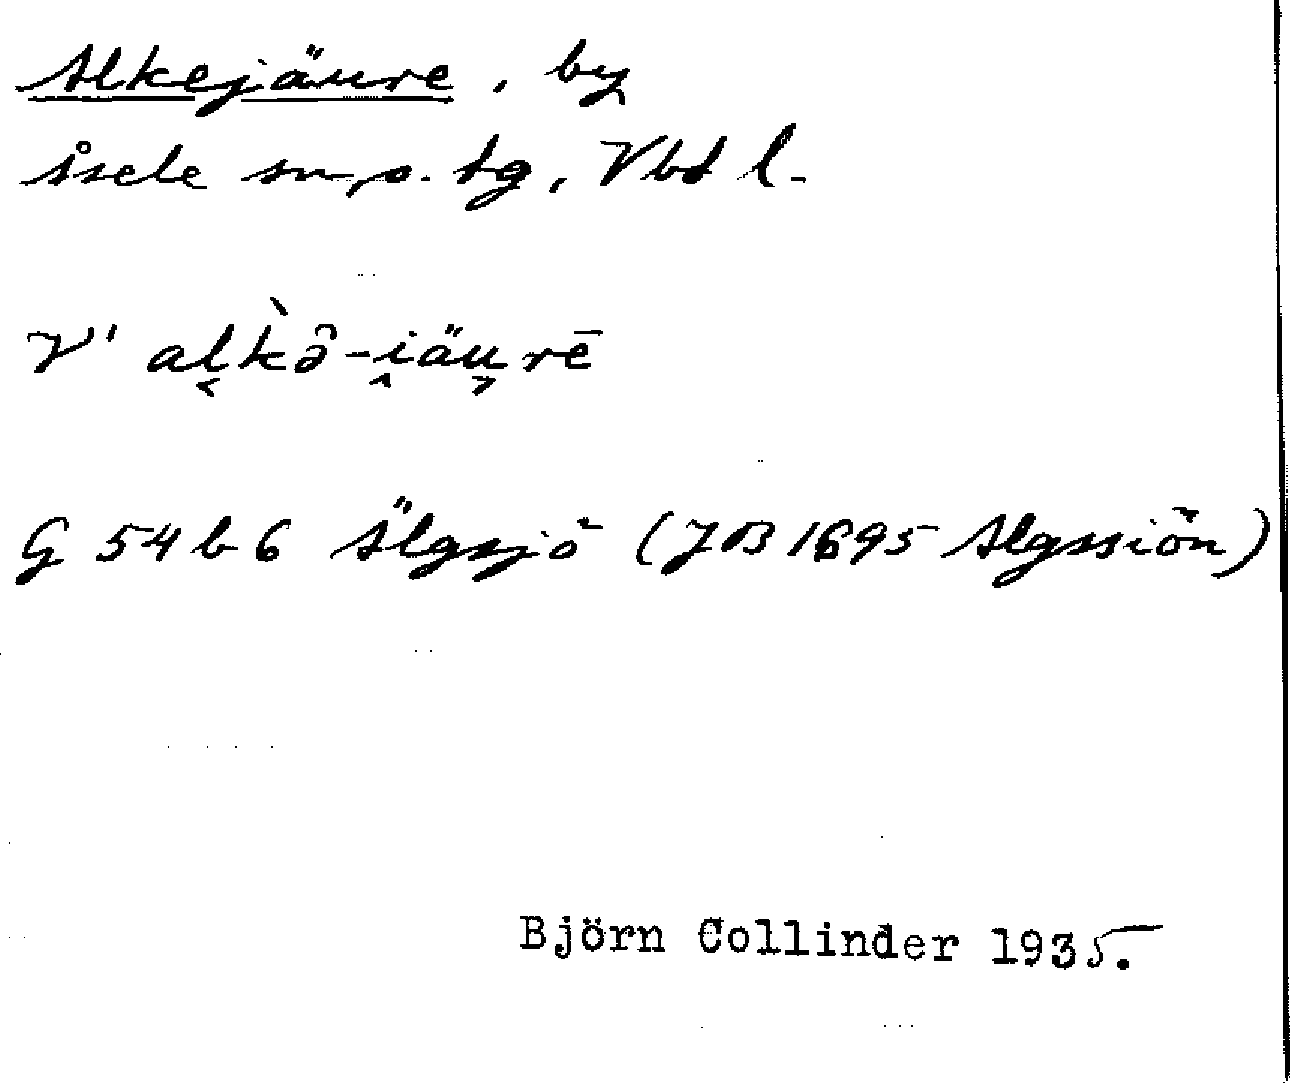 Alkejäure, by
Åsele sn, o. tg, Vbt l.
V' al̬k̀ə̂-i̭äu̬rē
G 54 b 6 Älgsjö (JB 1695 Algssiön)
Björn Collinder 1935.